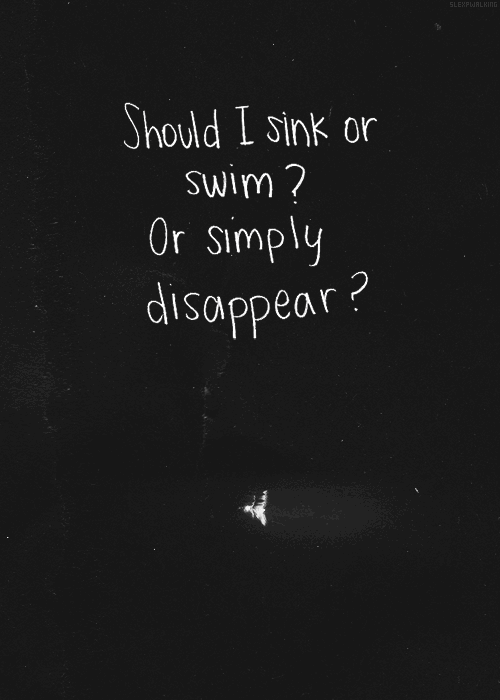 SLEEPWALKING
Should I sink or
swim?
Or simply
disappear?